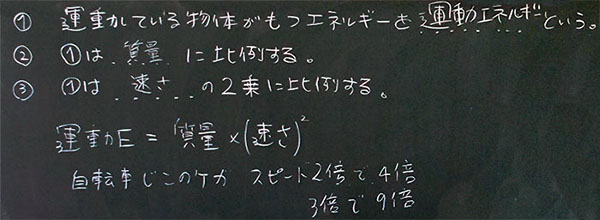 ① 運動している物体がもつエネルギーを運動エネルギーという。
② ①は 質量 に比例する。
③ ①は 速さ の2乗に比例する。
運動E = 質量 × (速さ)²
自転車じこのケガ スピード2倍で 4倍
3倍で 9倍